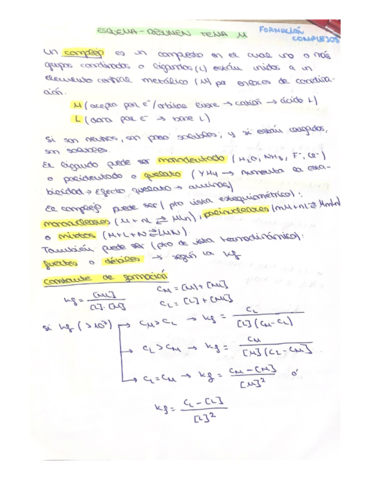 ESQUEMA - RESUMEN TEMA 11
FORMACIÓN COMPLEJOS
Un complejo es un compuesto en el cual uno o más
grupos coordinados o ligandos (L) están unidos a un
elemento central metálico (M) por enlaces de coordina-
ción.
M (acepta par e⁻/orbital libre → catión → ácido L)
L (dona par e⁻ → base L)
Si son neutros, son poco solubles, y si están cargados,
son solubles.
El ligando puede ser monodentado (H₂O, NH₃, F⁻, Cl⁻)
o polidentado o quelato (YH₄ → aumenta la esta-
bilidad → efecto quelato → aminas)
El complejo puede ser (pto vista estequiométrico):
mononucleares (M + nL ⇌ MLn), polinucleares (mM + nL ⇌ MmLn)
o mixtos (M + L + N ⇌ MLN)
También puede ser (pto de vista termodinámico):
fuertes o débiles → según la Kf
Constante de formación
Kf = [ML] / [L]·[M]
CM = [M] + [ML]
CL = [L] + [ML]
si Kf (>10⁵)
→ CM > CL → Kf = CL / [L](CM - CL)
→ CL > CM → Kf = CM / [M](CL - CM)
→ CL = CM → Kf = CM - [M] / [M]² ó
Kf = CL - [L] / [L]²